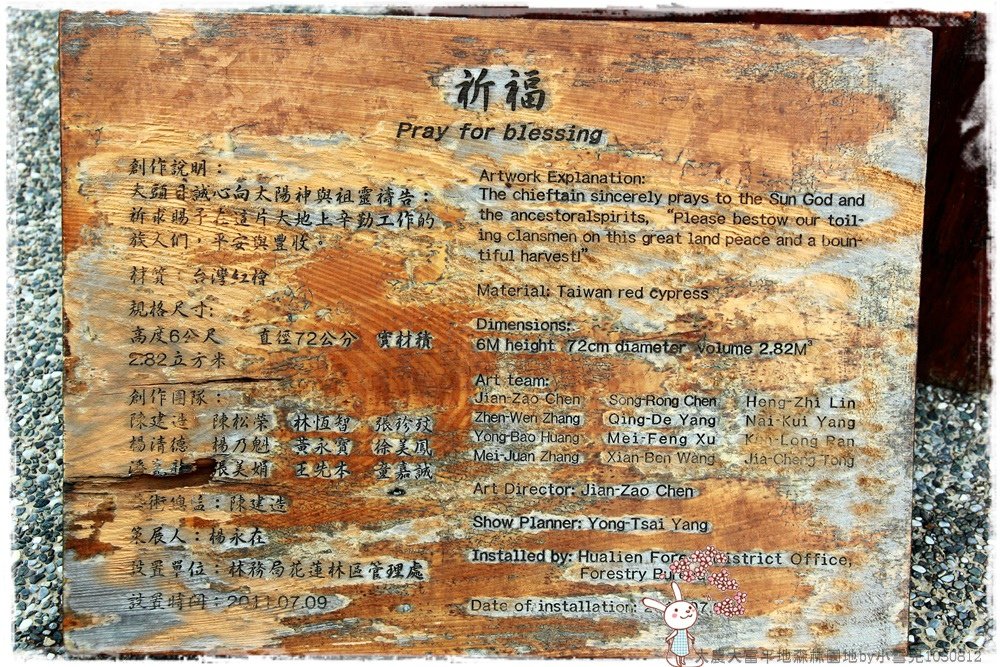 祈福
Pray for blessing
創作說明：
大頭目誠心向太陽神與祖靈禱告：
祈求賜予在這片大地上辛勤工作的
族人們，平安與豐收。
材質：台灣紅檜
規格尺寸：
高度6公尺 直徑72公分 實材積
2.82立方米
創作團隊：
陳建造 陳松榮 林恆智 張珍玟
楊清德 楊乃魁 黃永寶 徐美鳳
張美娟 王先本 童嘉誠
藝術總監：陳建造
策展人：楊永在
設置單位：林務局花蓮林區管理處
設置時間：2011.07.09
Artwork Explanation:
The chieftain sincerely prays to the Sun God and
the ancestoralspirits, “Please bestow our toil-
ing clansmen on this great land peace and a boun-
tiful harvest!”
Material: Taiwan red cypress
Dimensions:
6M height 72cm diameter volume 2.82M³
Art team:
Jian-Zao Chen Song-Rong Chen Heng-Zhi Lin
Zhen-Wen Zhang Qing-De Yang Nai-Kui Yang
Yong-Bao Huang Mei-Feng Xu Long Pan
Mei-Juan Zhang Xian-Ben Wang Jia-Cheng Tong
Art Director: Jian-Zao Chen
Show Planner: Yong-Tsai Yang
Installed by: Hualien District Office,
Forestry
Date of installation:
大農大富平地森林園地by小 1030812